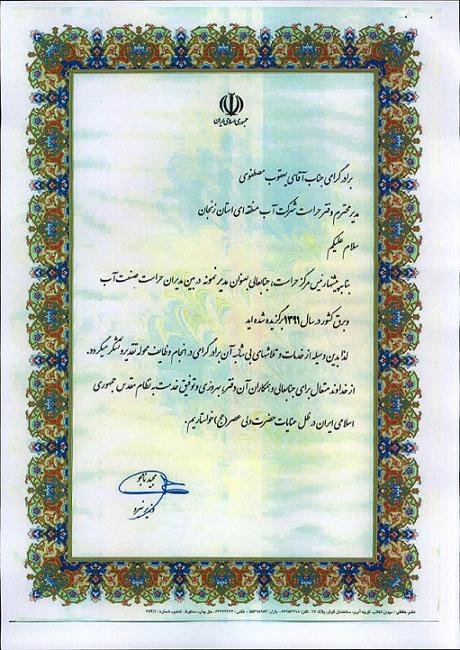 جمهوری اسلامی ایران
برادر گرامی جناب آقای یعقوب مصطفوی
مدیر محترم دفتر حراست شرکت آب منطقه ای استان زنجان
سلام علیکم
بنا به پیشنهاد رئیس مرکز حراست، جنابعالی بعنوان مدیر نمونه در بین مدیران حراست صنعت آب
و برق کشور در سال ۱۳۹۱ برگزیده شده اید
لذا بدین وسیله از خدمات و تلاشهای بی شائبه آن برادر گرامی در انجام وظایف محوله تقدیر و تشکر میگردد.
از خداوند متعال برای جنابعالی و همکاران آن دفتر، بهروزی و توفیق خدمت به نظام مقدس جمهوری
اسلامی ایران در ظل عنایات حضرت ولی عصر (عج) خواستاریم.
مجید نامجو
وزیر نیرو
میدان انقلاب، کوچه